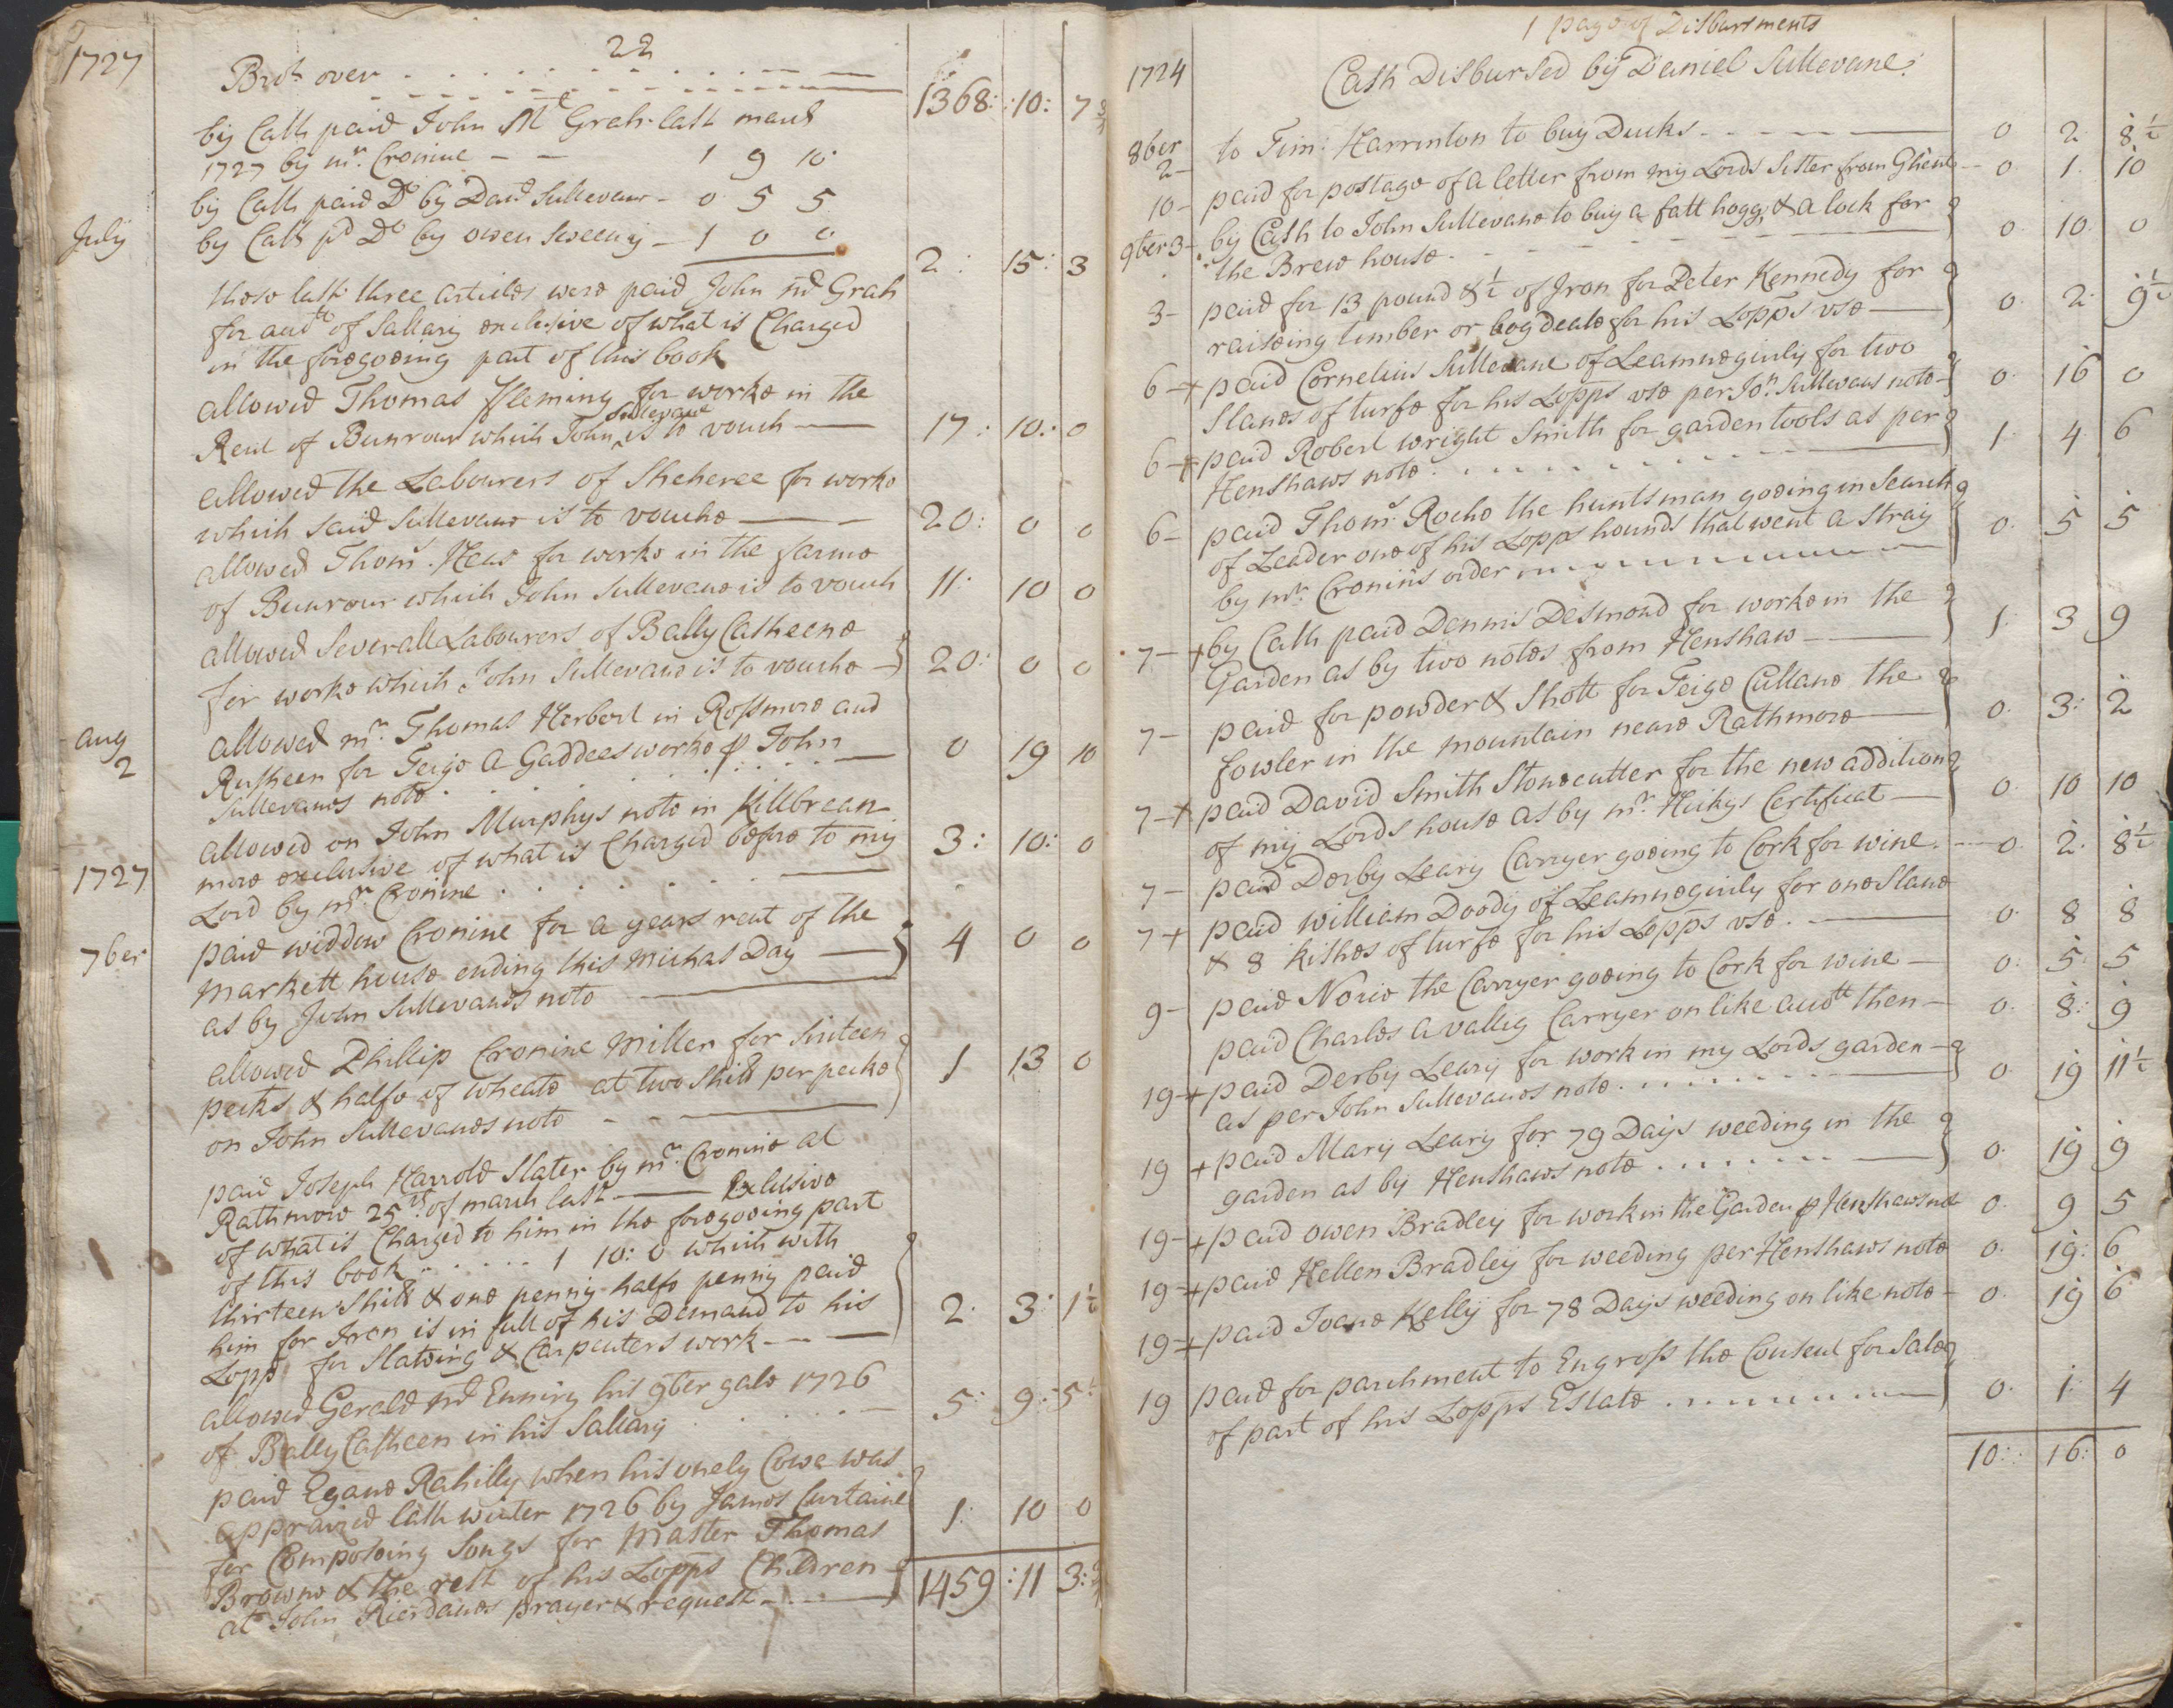 22
1727
Brot over - - - - - 1368: 10: 7 3/4
by Cash paid John Mc Grah last march
1727 by mr. Cronine - - 1 9 10
by Cash paid Do by Danl Sullevane - 0 5 5
July by Cash pd Do by owen Sweeny - 1 0 0
2: 15: 3
those last three articles were paid John Mc Grah
for acctt of Sallary exclusive of what is Charged
in the foregoeing part of this book
allowed Thomas Fleming for worke in the
Rent of Bunrour which John Sullevane is to vouch — 17: 10: 0
allowed the Labourers of Sheheree for worke
which said Sullevane is to vouche — 20: 0 0
allowed Thoms. Heas for worke in the farme
of Bunrour which John Sullevane is to vouch 11: 10 0
allowed Severall Labourers of Bally Casheene
for worke which John Sullevane is to vouche — 20: 0 0
aug allowed mr. Thomas Herbert in Rossmore and
2 Rusheen for Teige a Gaddees worke p John
Sullevanes note - - - 0 19 10
allowed on John Murphys note in Killbrean
more exclusive of what is Charged before to my
1727 Lord by mr. Cronine - - - 3: 10: 0
paid widdow Cronine for a years rent of the
7ber Markett house ending this Michas Day —
as by John Sullevanes note — 4 0 0
allowed Phillip Cronine Miller for Sixteen
pecks & halfe of wheate at two Shills per pecke
on John Sullevanes note - - 1 13 0
paid Joseph Harrold Slater by mr. Cronine at
Rathmore 25th of march last — Exclusive
of what is Charged to him in the foregoeing part
of this book - - - 1 10: 0 which with
thirteen Shills & one penny halfe penny paid
him for Iron is in full of his Demand to his
Lopps for Slateing & Carpenters work - - 2: 3: 1 1/2
allowed Gerald Mc Enniry his 9ber gale 1726
of Bally Casheen in his Sallary - - - 5: 9: 5 1/2
paid Egane Rahilly when his onely Cowe was
appraized last winter 1726 by James Curtaine
for Composeing Songs for Master Thomas
Browne & the rest of his Lopps Children
att John Rierdanes prayer & request - - 1: 10 0
1459: 11 3: 3/4
1 page of Disbursments
1724 Cash Disbursed by Daniel Sullevane:
8ber
2 - to Tim: Harrinton to buy Ducks - - - 0 2 8 1/2
10 - paid for postage of a letter from my Lords Sister from Ghent - 0 1 10
9ber 3 - by Cash to John Sullevane to buy a fatt hogg, & a lock for
the Brew house - - - 0 10 0
3 - paid for 13 pound & 1/2 of Iron for Peter Kennedy for
raiseing timber or bog deale for his Lopps vse — 0 2 9 1/2
6 - + paid Cornelius Sullevane of Leamneginly for two
Slanes of turfe for his Lopps vse per Jon. Sullevans note - 0 16 0
6 - + paid Robert wright Smith for garden tools as per
Henshaws note - - - 1 4 6
6 - paid Thoms. Roche the huntsman goeing in Search
of Leader one of his Lopps hounds that went a Stray
by mr. Cronins order - - - 0 5 5
7 - + by Cash paid Dennis Desmond for worke in the
Garden as by two notes from Henshaw — 1: 3 9
7 - paid for powder & Shott for Teige Cullane the
fowler in the mountain neare Rathmore — 0 3: 2
7 - + paid David Smith Stonecutter for the new addition
of my Lords house as by mr. Hickys Certificat — 0 10 10
7 - paid Derby Leary Carryer goeing to Cork for wine. — 0 2 8 1/2
7 + paid William Doody of Leamneginly for one Slane
& 8 kishes of turfe for his Lopps vse. — 0 8 8
9 - paid Norie the Carryer goeing to Cork for wine — 0: 5 5
paid Charles a vally Carryer on like acctt then — 0: 8: 9
19 - + paid Derby Leary for work in my Lords garden -
as per John Sullevanes note - - - 0 19 11 1/2
19 + paid Mary Leary for 79 Days weeding in the
garden as by Henshaws note - - - 0 19 9
19 - + paid owen Bradley for work in the Garden p Henshaws not 0 9 5
19 - + paid Hellen Bradley for weeding per Henshaws note 0 19: 6
19 - + paid Joane Kelly for 78 Days weeding on like note - 0 19 6
19 paid for parchment to Engross the Consent for Sale
of part of his Lopps Estate - - - 0 1: 4
10: 16: 0